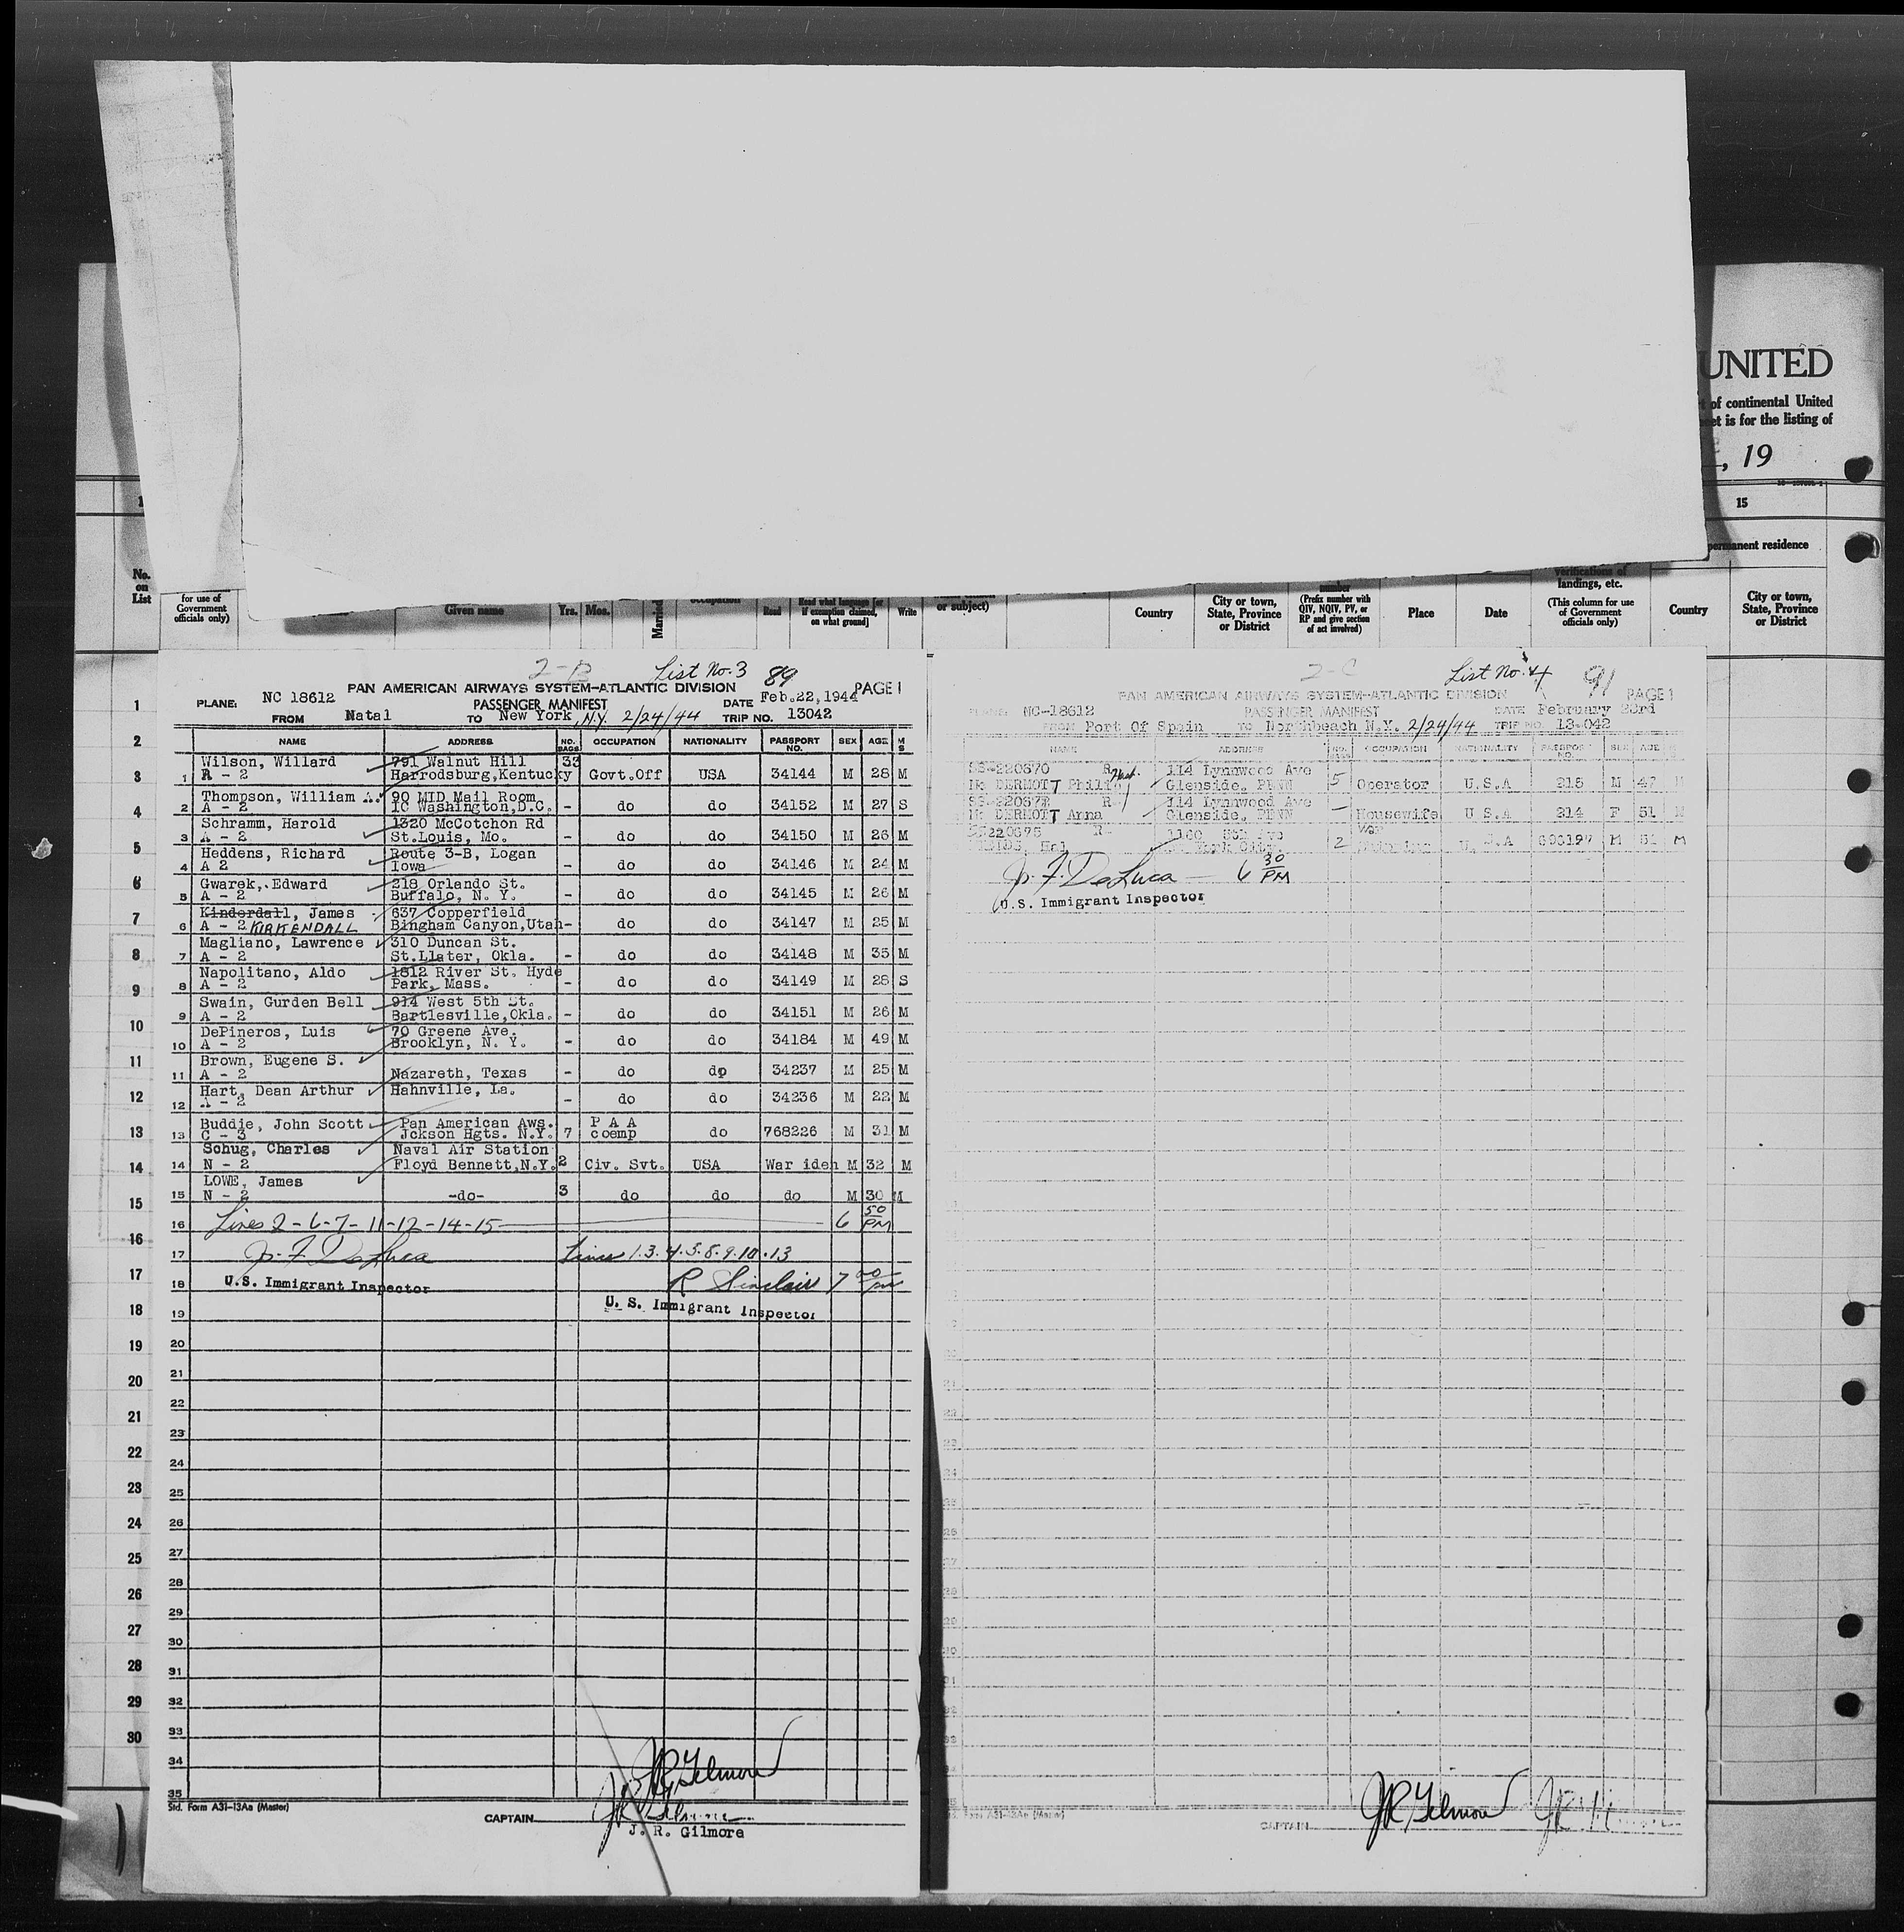 UNITED
of continental United
et is for the listing of
, 19
15
permanent residence
No.
on
List
for use of
Government
officials only)
Given name
Yrs.
Mos.
Married
occupation
Read
Read what language [or
if exemption claimed,
on what ground]
Write
or subject)
Country
City or town,
State, Province
or District
number
(Prefix number with
QIV, NQIV, PV, or
RP and give section
of act involved)
Place
Date
Verifications of
landings, etc.
(This column for use
of Government
officials only)
Country
City or town,
State, Province
or District
1
2
3
4
5
6
7
8
9
10
11
12
13
14
15
16
17
18
19
20
21
22
23
24
25
26
27
28
29
30
2-B List No. 3 89
PAN AMERICAN AIRWAYS SYSTEM—ATLANTIC DIVISION PAGE 1
PLANE: NC 18612 PASSENGER MANIFEST DATE Feb.22,1944
FROM Natal TO New York, N.Y. 2/24/44 TRIP NO. 13042
NAME ADDRESS NO. BAGS OCCUPATION NATIONALITY PASSPORT NO. SEX AGE M S
Wilson, Willard 791 Walnut Hill 33
1 A - 2 Harrodsburg,Kentucky Govt.Off USA 34144 M 28 M
Thompson, William A. 90 MID Mail Room
2 A - 2 Washington,D.C. - do do 34152 M 27 S
Schramm, Harold 1320 McCotchon Rd
3 A - 2 St.Louis, Mo. - do do 34150 M 26 M
Heddens, Richard Route 3-B, Logan
4 A 2 Iowa - do do 34146 M 24 M
Gwarek,.Edward 218 Orlando St.
5 A - 2 Buffalo, N. Y. - do do 34145 M 26 M
Kinderdall, James 637 Copperfield
6 A - 2 KIRKENDALL Bingham Canyon,Utah- do do 34147 M 25 M
Magliano, Lawrence 310 Duncan St.
7 A - 2 St.Llater, Okla. - do do 34148 M 35 M
Napolitano, Aldo 1812 River St. Hyde
8 A - 2 Park, Mass. - do do 34149 M 28 S
Swain, Gurden Bell 914 West 5th St.
9 A - 2 Bartlesville,Okla. - do do 34151 M 26 M
DePineros, Luis 70 Greene Ave.
10 A - 2 Brooklyn, N. Y. - do do 34184 M 49 M
Brown, Eugene S.
11 A - 2 Nazareth, Texas - do do 34237 M 25 M
Hart, Dean Arthur Hahnville, La.
12 A - 2 - do do 34236 M 22 M
Buddie, John Scott Pan American Aws. P A A
13 C - 3 Jckson Hgts. N.Y. 7 coemp do 768226 M 31 M
Schug, Charles Naval Air Station
14 N - 2 Floyd Bennett,N.Y. 2 Civ. Svt. USA War iden M 32 M
LOWE, James
15 N - 2 -do- 3 do do do M 30 M
16 Lines 2-6-7-11-12-14-15 6 50 PM
17 Jr. F. DeLuca Lines 1.3.4.5.8.9.10.13
18 U.S. Immigrant Inspector R Sinclair 7 00 PM
19 U. S. Immigrant Inspector
20
21
22
23
24
25
26
27
28
29
30
31
32
33
34
35
Std. Form A31-13Aa (Master)
JR Gilmore
CAPTAIN JR Gilmore
J. R. Gilmore
2-C List No. 4 91
PAN AMERICAN AIRWAYS SYSTEM—ATLANTIC DIVISION PAGE 1
PLANE: NC-18612 PASSENGER MANIFEST DATE February 23rd
FROM Port Of Spain TO Northbeach N.Y. 2/24/44 TRIP NO. 13-042
NAME ADDRESS NO. BAGS OCCUPATION NATIONALITY PASSPORT NO. SEX AGE
SS-220870 R 114 Lynnwood Ave
Mc DERMOTT Philip Glenside, PENN 5 Operator U.S.A 215 M 47 M
R 114 Lynnwood Ave
Mc DERMOTT Anna Glenside, PENN - Housewife U.S.A 214 F 51 M
R 5th Ave
Hal York City. 2 M 51 M
Jr. F. DeLuca — 6 30 PM
U.S. Immigrant Inspector
Form A31-13Aa (Master)
CAPTAIN JR Gilmore